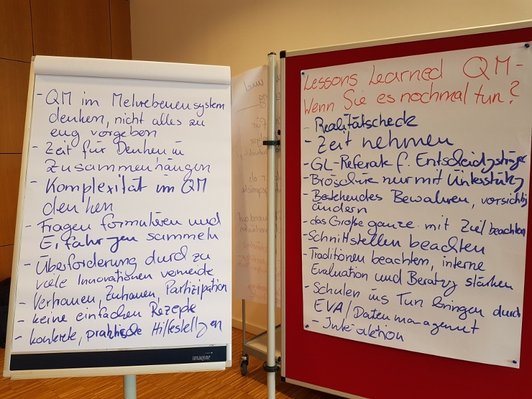 - QM im Mehrebenensystem
denken, nicht alles zu
eng vorgeben
- Zeit für Denken in
Zusammenhängen
- Komplexität im QM
denken
- Fragen formulieren und
Erfahrungen sammeln
- Überforderung durch zu
viele Innovationen vermeide
- Vertrauen, Zutrauen, Partizipation
- keine einfachen Rezepte
- konkrete, praktische Hilfestellungen
Lessons Learned QM -
Wenn Sie es nochmal tun?
- Realitätscheck
- Zeit nehmen
- GL-Referate f. Entscheidungsträger
- Broschüre nur mit Unterstützg
- Bestehendes Bewahren, vorsichtig
ändern
- das Große ganze mit Ziel beachten
- Schnittstellen beachten
- Traditionen beachten, interne
Evaluation und Beratg stärken
- Schulen ins Tun bringen durch
EVA/Datenmanagement
- Interaktion